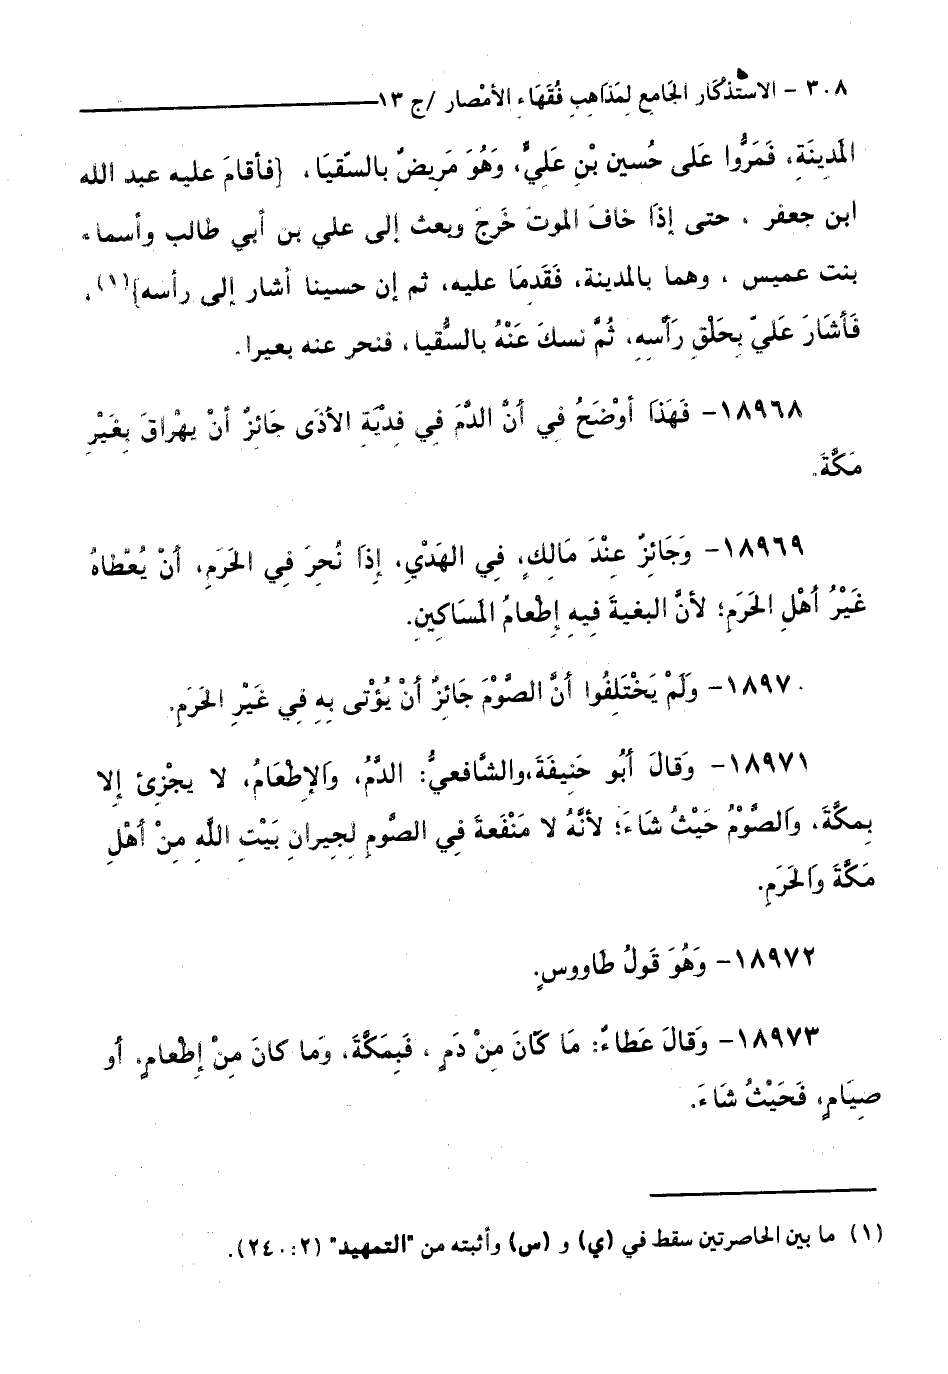 ٣٠٨ - الاسْتذْكَار الجَامِع لمَذاهِبِ فُقَهَاء الأمْصار /ج ١٣
المَدِينَةِ، فَمَرُّوا عَلى حُسين بْنِ عَليٍّ، وَهُوَ مَرِيضٌ بالسّقيَا، {فأقامَ عليه عبد الله
ابن جعفر ، حتى إذَا خافَ الموتَ خَرجَ وبعث إلى علي بن أبي طالب وأسماء
بنت عميس ، وهما بالمدينة، فَقَدمَا عليه، ثم إن حسينا أشار إلى رأسه}(١)،
فَأشَارَ عَليّ بِحَلْقِ رَأسِهِ، ثُمَّ نسكَ عَنْهُ بالسُّقيا، فنحر عنه بعيرا.
١٨٩٦٨- فَهَذَا أوْضَحُ فِي أنَّ الدَّمَ فِي فِدْيَةِ الأذَى جَائِزٌ أنْ يهْراقَ بِغَيْرِ
مَكَّةَ.
١٨٩٦٩- وَجَائِزٌ عِنْدَ مَالِكٍ، فِي الهَدْيِ، إذَا نُحِرَ فِي الحَرَمِ، أنْ يُعْطاهُ
غَيْرُ أهْلِ الحَرَمِ؛ لأنَّ البغيةَ فِيهِ إِطْعامُ المَسَاكِينِ.
١٨٩٧٠- وَلَمْ يَخْتَلِفُوا أنَّ الصَّوْمَ جَائِزٌ أنْ يُؤْتى بِهِ فِي غَيْرِ الحَرَمِ.
١٨٩٧١- وَقالَ أبُو حَنِيفَةَ،والشَّافعيُّ: الدَّمُ، وَالإطْعَامُ، لا يجْزِئ إلا
بِمكَّةَ، وَالصَّوْمُ حَيْثُ شاءَ؛ لأنَّهُ لا مَنْفَعةَ فِي الصَّومِ لِجِيرانِ بَيْتِ اللَّهِ مِنْ أهْلِ
مَكَّةَ وَالحَرَمِ.
١٨٩٧٢- وَهُوَ قَولُ طَاووسٍ.
١٨٩٧٣- وَقالَ عَطاءٌ: مَا كَانَ مِنْ دَمٍ ، فَبِمَكَّةَ، وَما كانَ مِنْ إطْعامٍ، أو
صِيَامٍ، فَحَيْثُ شَاءَ.
(١) ما بين الحاصرتين سقط في (ي) و (س) وأثبته من "التمهيد" (٢:٢٤٠).